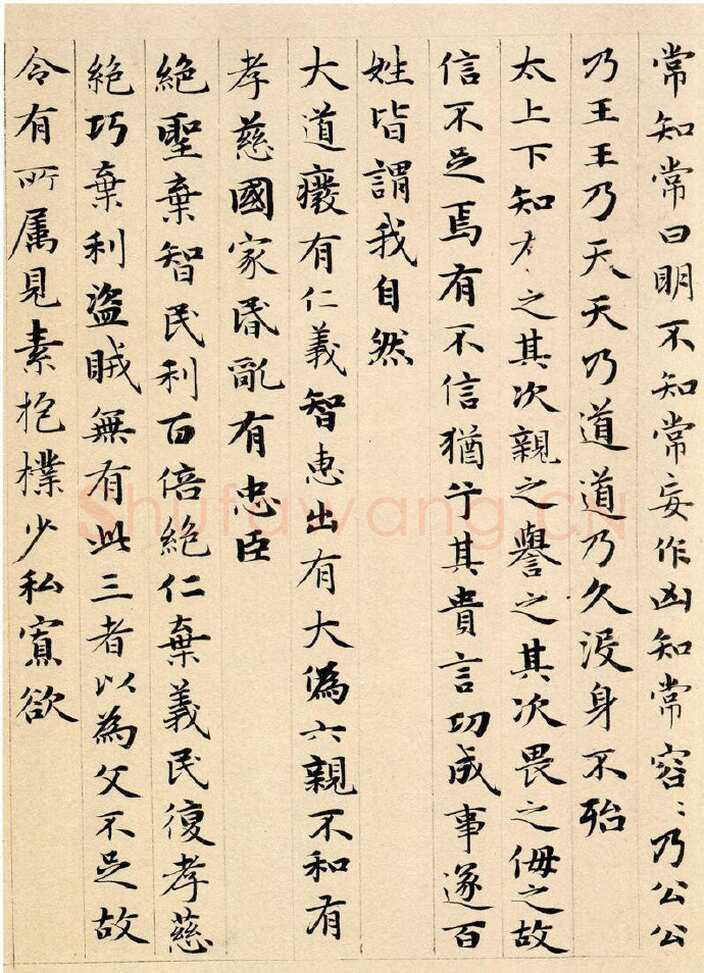 常知常曰明不知常妄作凶知常容〻乃公公
乃王王乃天天乃道道乃久没身不殆
太上下知有之其次親之譽之其次畏之侮之故
信不足焉有不信猶兮其貴言功成事遂百
姓皆謂我自然
大道癈有仁義智惠出有大偽六親不和有
孝慈國家昏亂有忠臣
絕聖棄智民利百倍絕仁棄義民復孝慈
絕巧棄利盜賊無有此三者以為父不足故
令有所属見素抱樸少私寡欲
Shufawang.CN